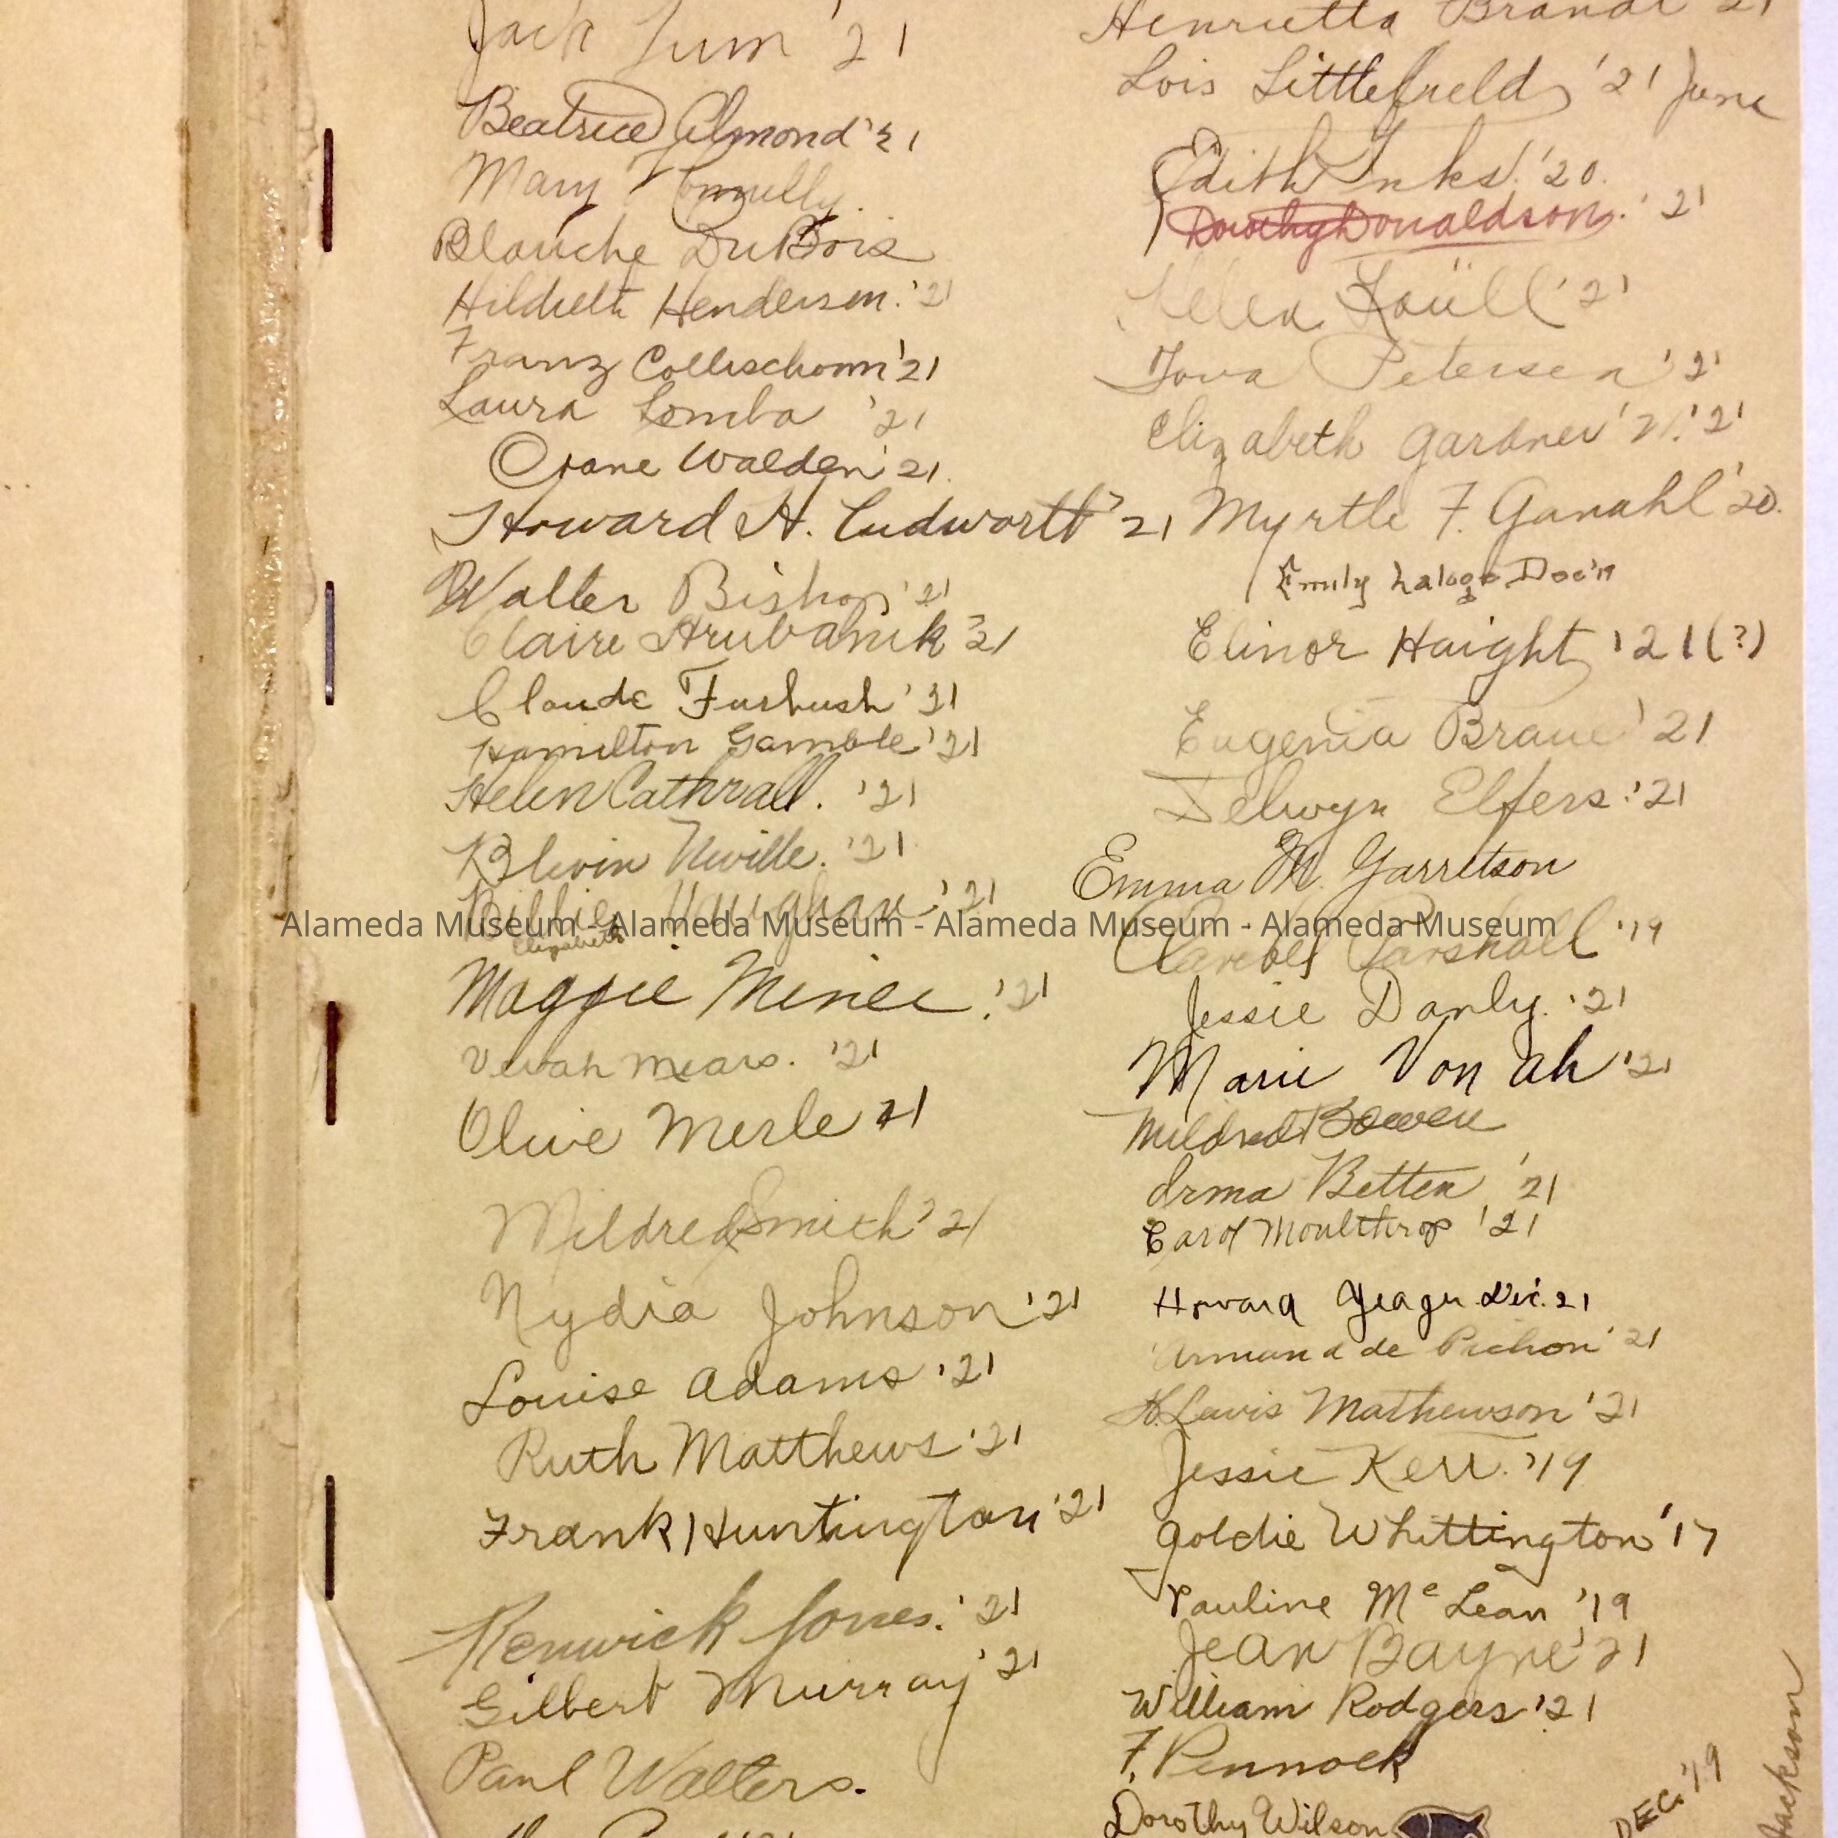 Jack Lum '21
Beatrice Almond '21
Mary
Blanche DuBois
Hildreth Henderson. '21
Franz Collischonn '21
Laura Lomba '21
Crane Walden '21.
Howard H. Cudworth '21
Walter Bishop '21
Claire Hrubanik '21
Claude Furbush '21
Hamilton Gamble '21
Helen Cathrall. '21
Blevin Neville. '21
Billie Vaughan. '21
Elizabeth
Maggie Minee. '21
Mears. '21
Olive Merle 21
Mildred Smith '21
Nydia Johnson '21
Louise Adams '21
Ruth Matthews '21
Frank Huntington '21
Renwick Jones. '21
Gilbert Murray '21
Paul Walters.
Henrietta Brandt '21
Lois Littlefield '21 June
Edith Inks. '20.
Dorothy Donaldson. '21
Helen '21
Tova Petersen '21
Elizabeth Gardner '21. '21
Myrtle F. Ganahl '20.
Emily Dec '19
Elinor Haight '21 (?)
Eugenia Braue '21
Selwyn Elfers. '21
Emma M. Garretson
Clarebel Parshall '19
Jessie Danly. '21
Marie Von Ah '21
Mildred Bowen
Irma Betten '21
Carol Moulthrop '21
Howard Yeager Dec. 21
Armand de Pichon '21
H. Lewis Mathewson '21
Jessie Kerr. '19
Goldie Whittington '17
Pauline McLean '19
Jean Bayne '21
William Rodgers '21
F. Pennock
Dorothy Wilson
DEC. '19
Jackson
Alameda Museum - Alameda Museum - Alameda Museum - Alameda Museum